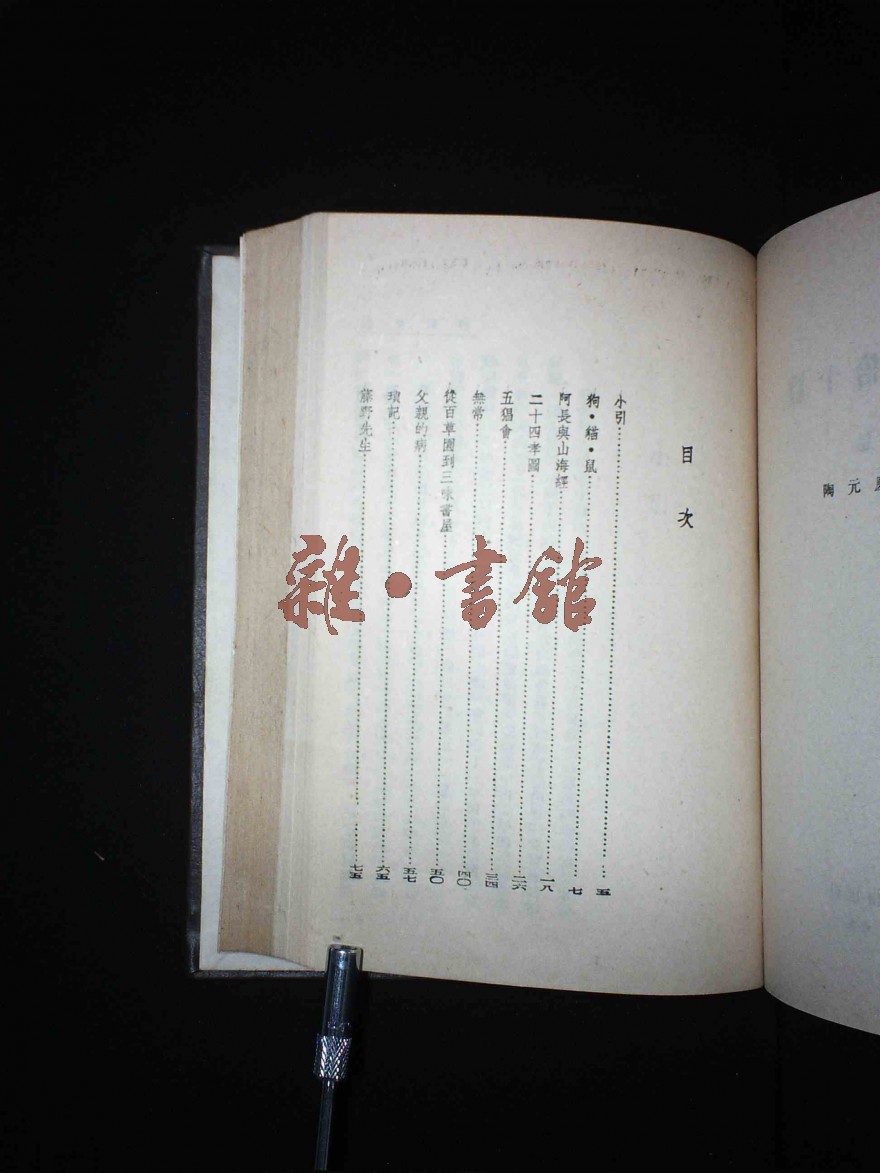 目次
小引五
狗·貓·鼠七
阿長與山海經一八
二十四孝圖二六
五猖會三四
無常四〇
從百草園到三味書屋五〇
父親的病五七
瑣記六五
藤野先生七五
陶元
雜·書館